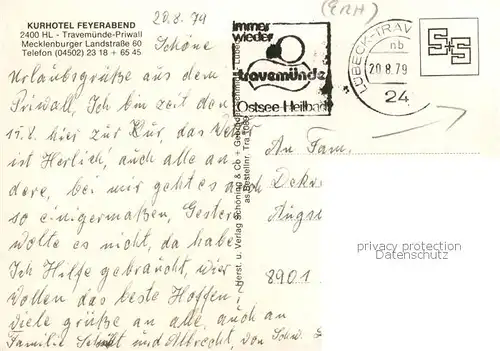 KURHOTEL FEYERABEND
2400 HL - Travemünde-Priwall
Mecklenburger Landstraße 60
Telefon (04502) 23 18 + 65 45
20.8.79
(ERH)
immer
wieder
travemünde
Ostsee-Heilbad
LÜBECK-TRAV
nb
20.8.79
24
S+S
Schöne
Urlaubsgrüße aus dem
Priwall, Ich bin zeit den
15.8. hier zur Kur, das Wetter
ist Herlich, auch alle an
dere, bei mir geht es auch
so einigermaßen, Gestern
wolte es nicht, da habe
Ich Hilfe gebraucht, wier
wollen das beste Hoffen,
viele grüße an alle, auch an
Familie Schmitt und Albrecht, von
Herst. u. Verlag Schöning & Co + Lübeck
Bestellnr. Tra
An Fam.
Dekr
Augs
8901
privacy protection